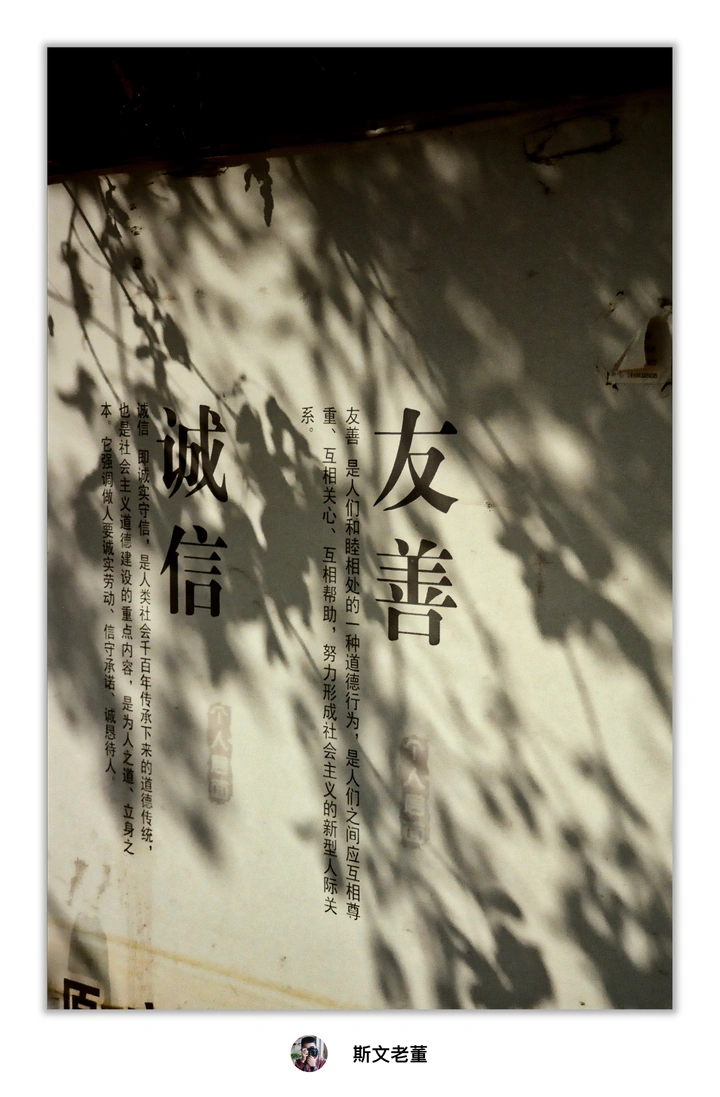 友善
友善 是人们和睦相处的一种道德行为，是人们之间应互相尊
重、互相关心、互相帮助，努力形成社会主义的新型人际关
系。
个人层面
诚信
诚信 即诚实守信，是人类社会千百年传承下来的道德传统，
也是社会主义道德建设的重点内容，是为人之道、立身之
本。它强调做人要诚实劳动、信守承诺、诚恳待人。
个人层面
斯文老董